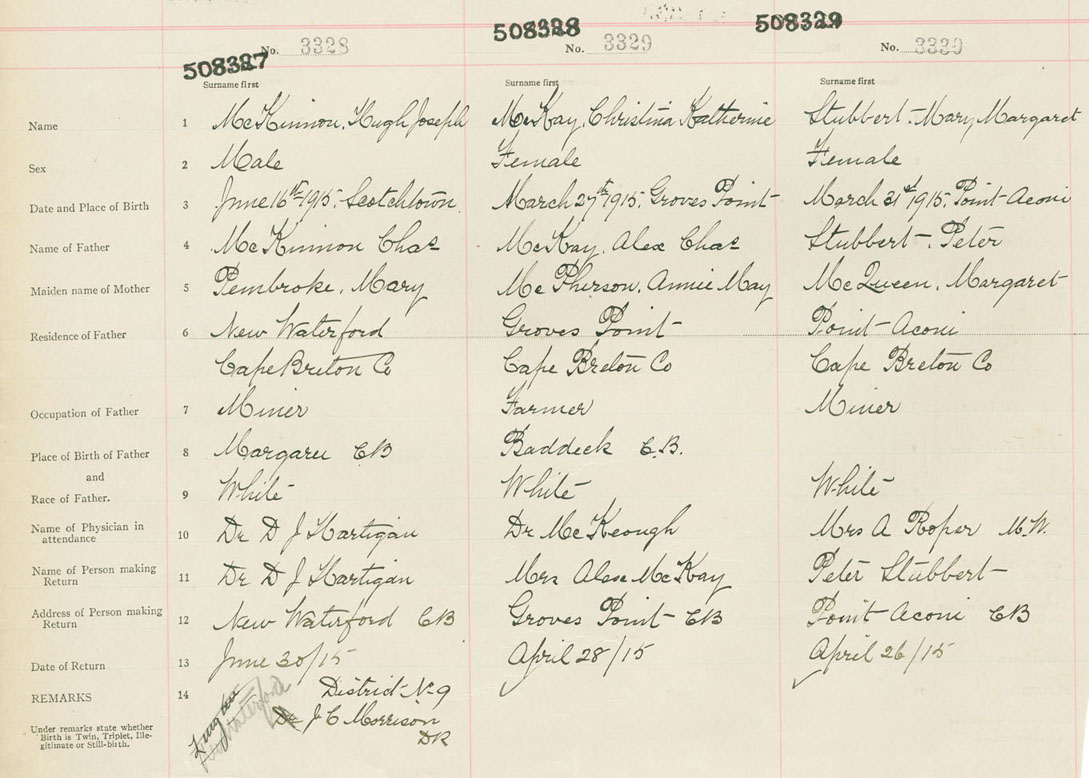 508327
508328
508329
No. 3328
No. 3329
No. 3330
Surname first
Surname first
Surname first
Name 1 McKinnon, Hugh Joseph McKay, Christina Katherine Stubbert, Mary Margaret
Sex 2 Male Female Female
Date and Place of Birth 3 June 16th 1915, Scotchtown March 27th 1915, Groves Point March 31st 1915, Point Aconi
Name of Father 4 McKinnon Chas McKay, Alex Chas Stubbert, Peter
Maiden name of Mother 5 Pembroke, Mary McPherson, Annie May McQueen, Margaret
Residence of Father 6 New Waterford Groves Point Point Aconi
Cape Breton Co Cape Breton Co Cape Breton Co
Occupation of Father 7 Miner Farmer Miner
Place of Birth of Father 8 Margaree CB Baddeck C.B.
and
Race of Father. 9 White White White
Name of Physician in attendance 10 Dr D J Hartigan Dr McKeough Mrs A Roper M.W.
Name of Person making Return 11 Dr D J Hartigan Mrs Alex McKay Peter Stubbert
Address of Person making Return 12 New Waterford CB Groves Point CB Point Aconi CB
Date of Return 13 June 30/15 April 28/15 April 26/15
REMARKS 14 District No 9
Under remarks state whether Birth is Twin, Triplet, Ille-
gitimate or Still-birth.
Dr J C Morrison
DR